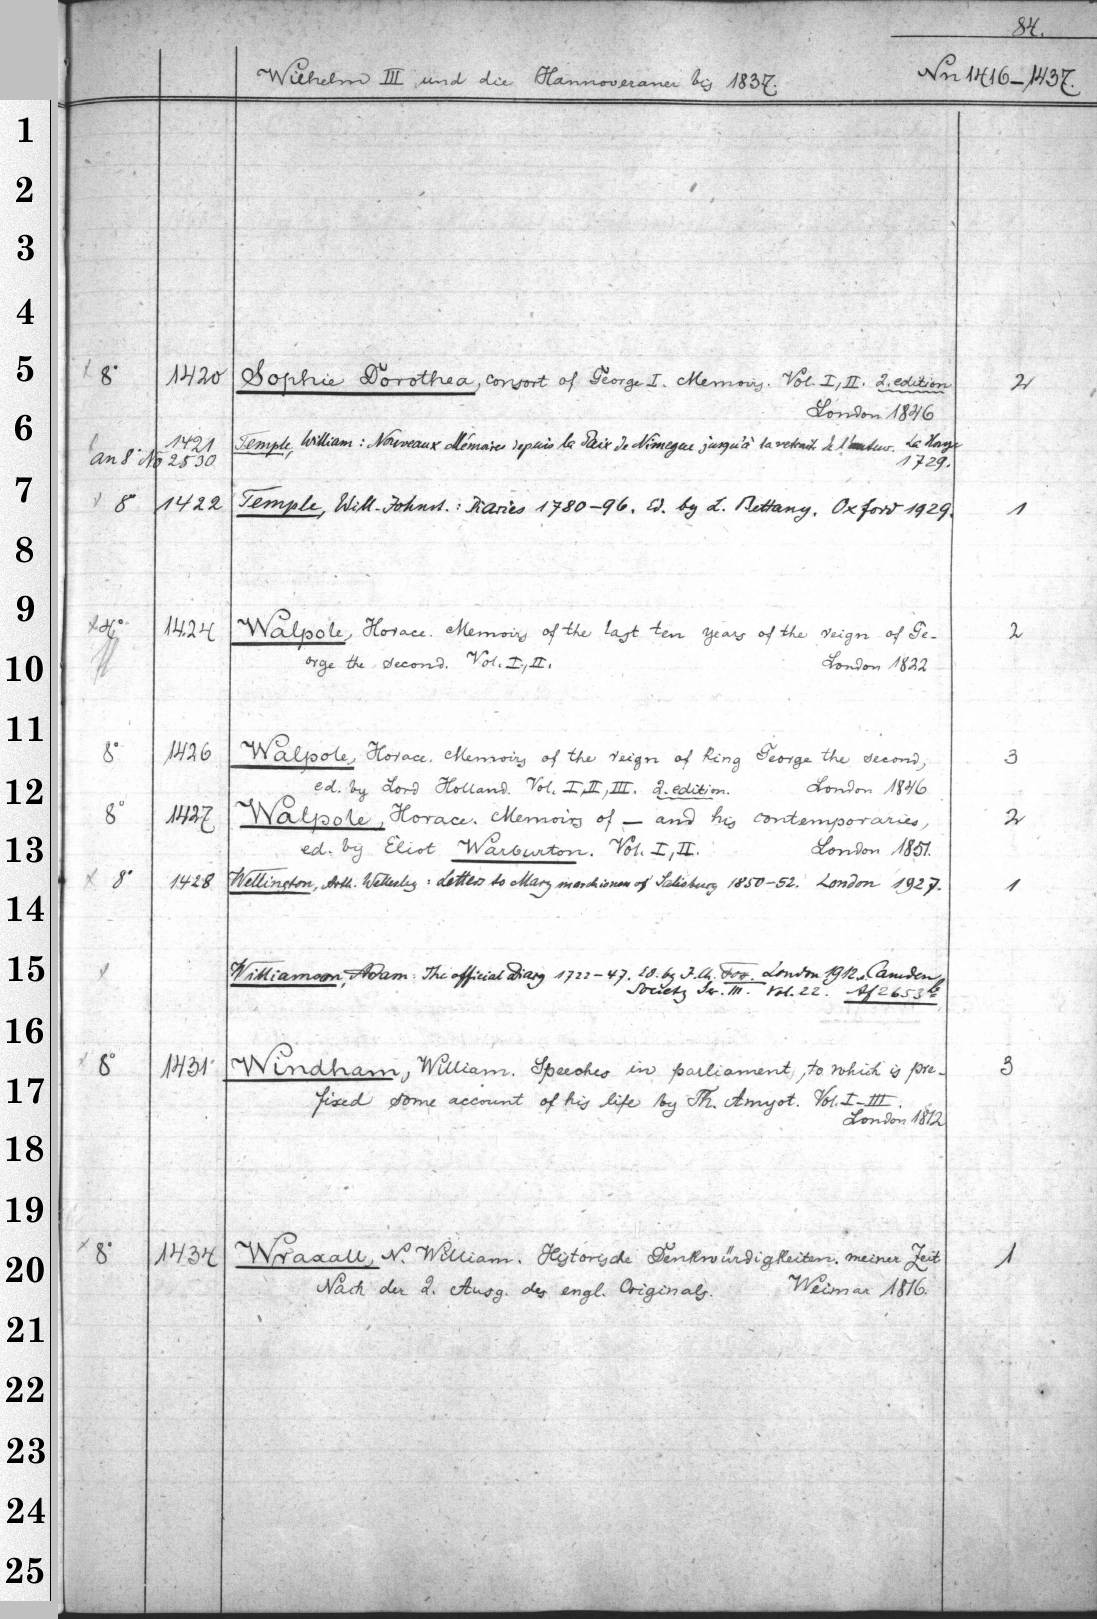 84.
Wilhelm III und die Hannoveraner bis 1837. Nn 1416–1437.
1
2
3
4
5 8° 1420 Sophie Dorothea, consort of George I. Memoirs. Vol. I, II. 2. edition 2
London 1846
6 an 8° No 1421 2530 Temple, William: Nouveaux Mémoires depuis la Paix de Nimegue jusqu'à la retraite de l'auteur. La Haye
1729.
7 8° 1422 Temple, Will. Johnst.: Diaries 1780–96. Ed. by L. Bettany. Oxford 1929. 1
8
9 4° 1424 Walpole, Horace. Memoirs of the last ten years of the reign of Ge- 2
10 orge the second. Vol. I, II. London 1822
11 8° 1426 Walpole, Horace. Memoirs of the reign of King George the second, 3
12 ed. by Lord Holland. Vol. I, II, III. 2. edition. London 1846
8° 1427 Walpole, Horace. Memoirs of — and his contemporaries, 2
13 ed. by Eliot Warburton. Vol. I, II. London 1851.
8° 1428 Wellington, Arth. Wellesley: Letters to Mary marchioness of Salisbury 1850–52. London 1927. 1
14
15 Williamson, Adam: The official Diary 1722–47. Ed. by J. Ch. Fox. London 1912. Camden
Society Ser. III. Vol. 22. Af 2653
16
8° 1431 Windham, William. Speeches in parliament, to which is pre- 3
17 fixed some account of his life by Th. Amyot. Vol. I–III.
London 1812
18
19
20 8° 1434 Wraxall, N. William. Historische Denkwürdigkeiten meiner Zeit 1
Nach der 2. Ausg. des engl. Originals. Weimar 1816.
21
22
23
24
25